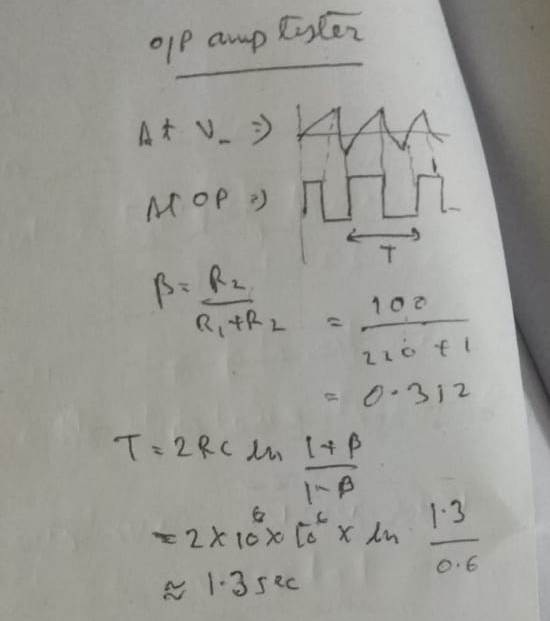 O/P amp tester
At V_ ⇒
At OP ⇒
T
β = R₂ / R₁+R₂ = 100 / 220 + 1
= 0.312
T = 2RC ln 1+β / 1-β
= 2 × 10⁶ × 10⁶ × ln 1.3 / 0.6
≈ 1.3 sec